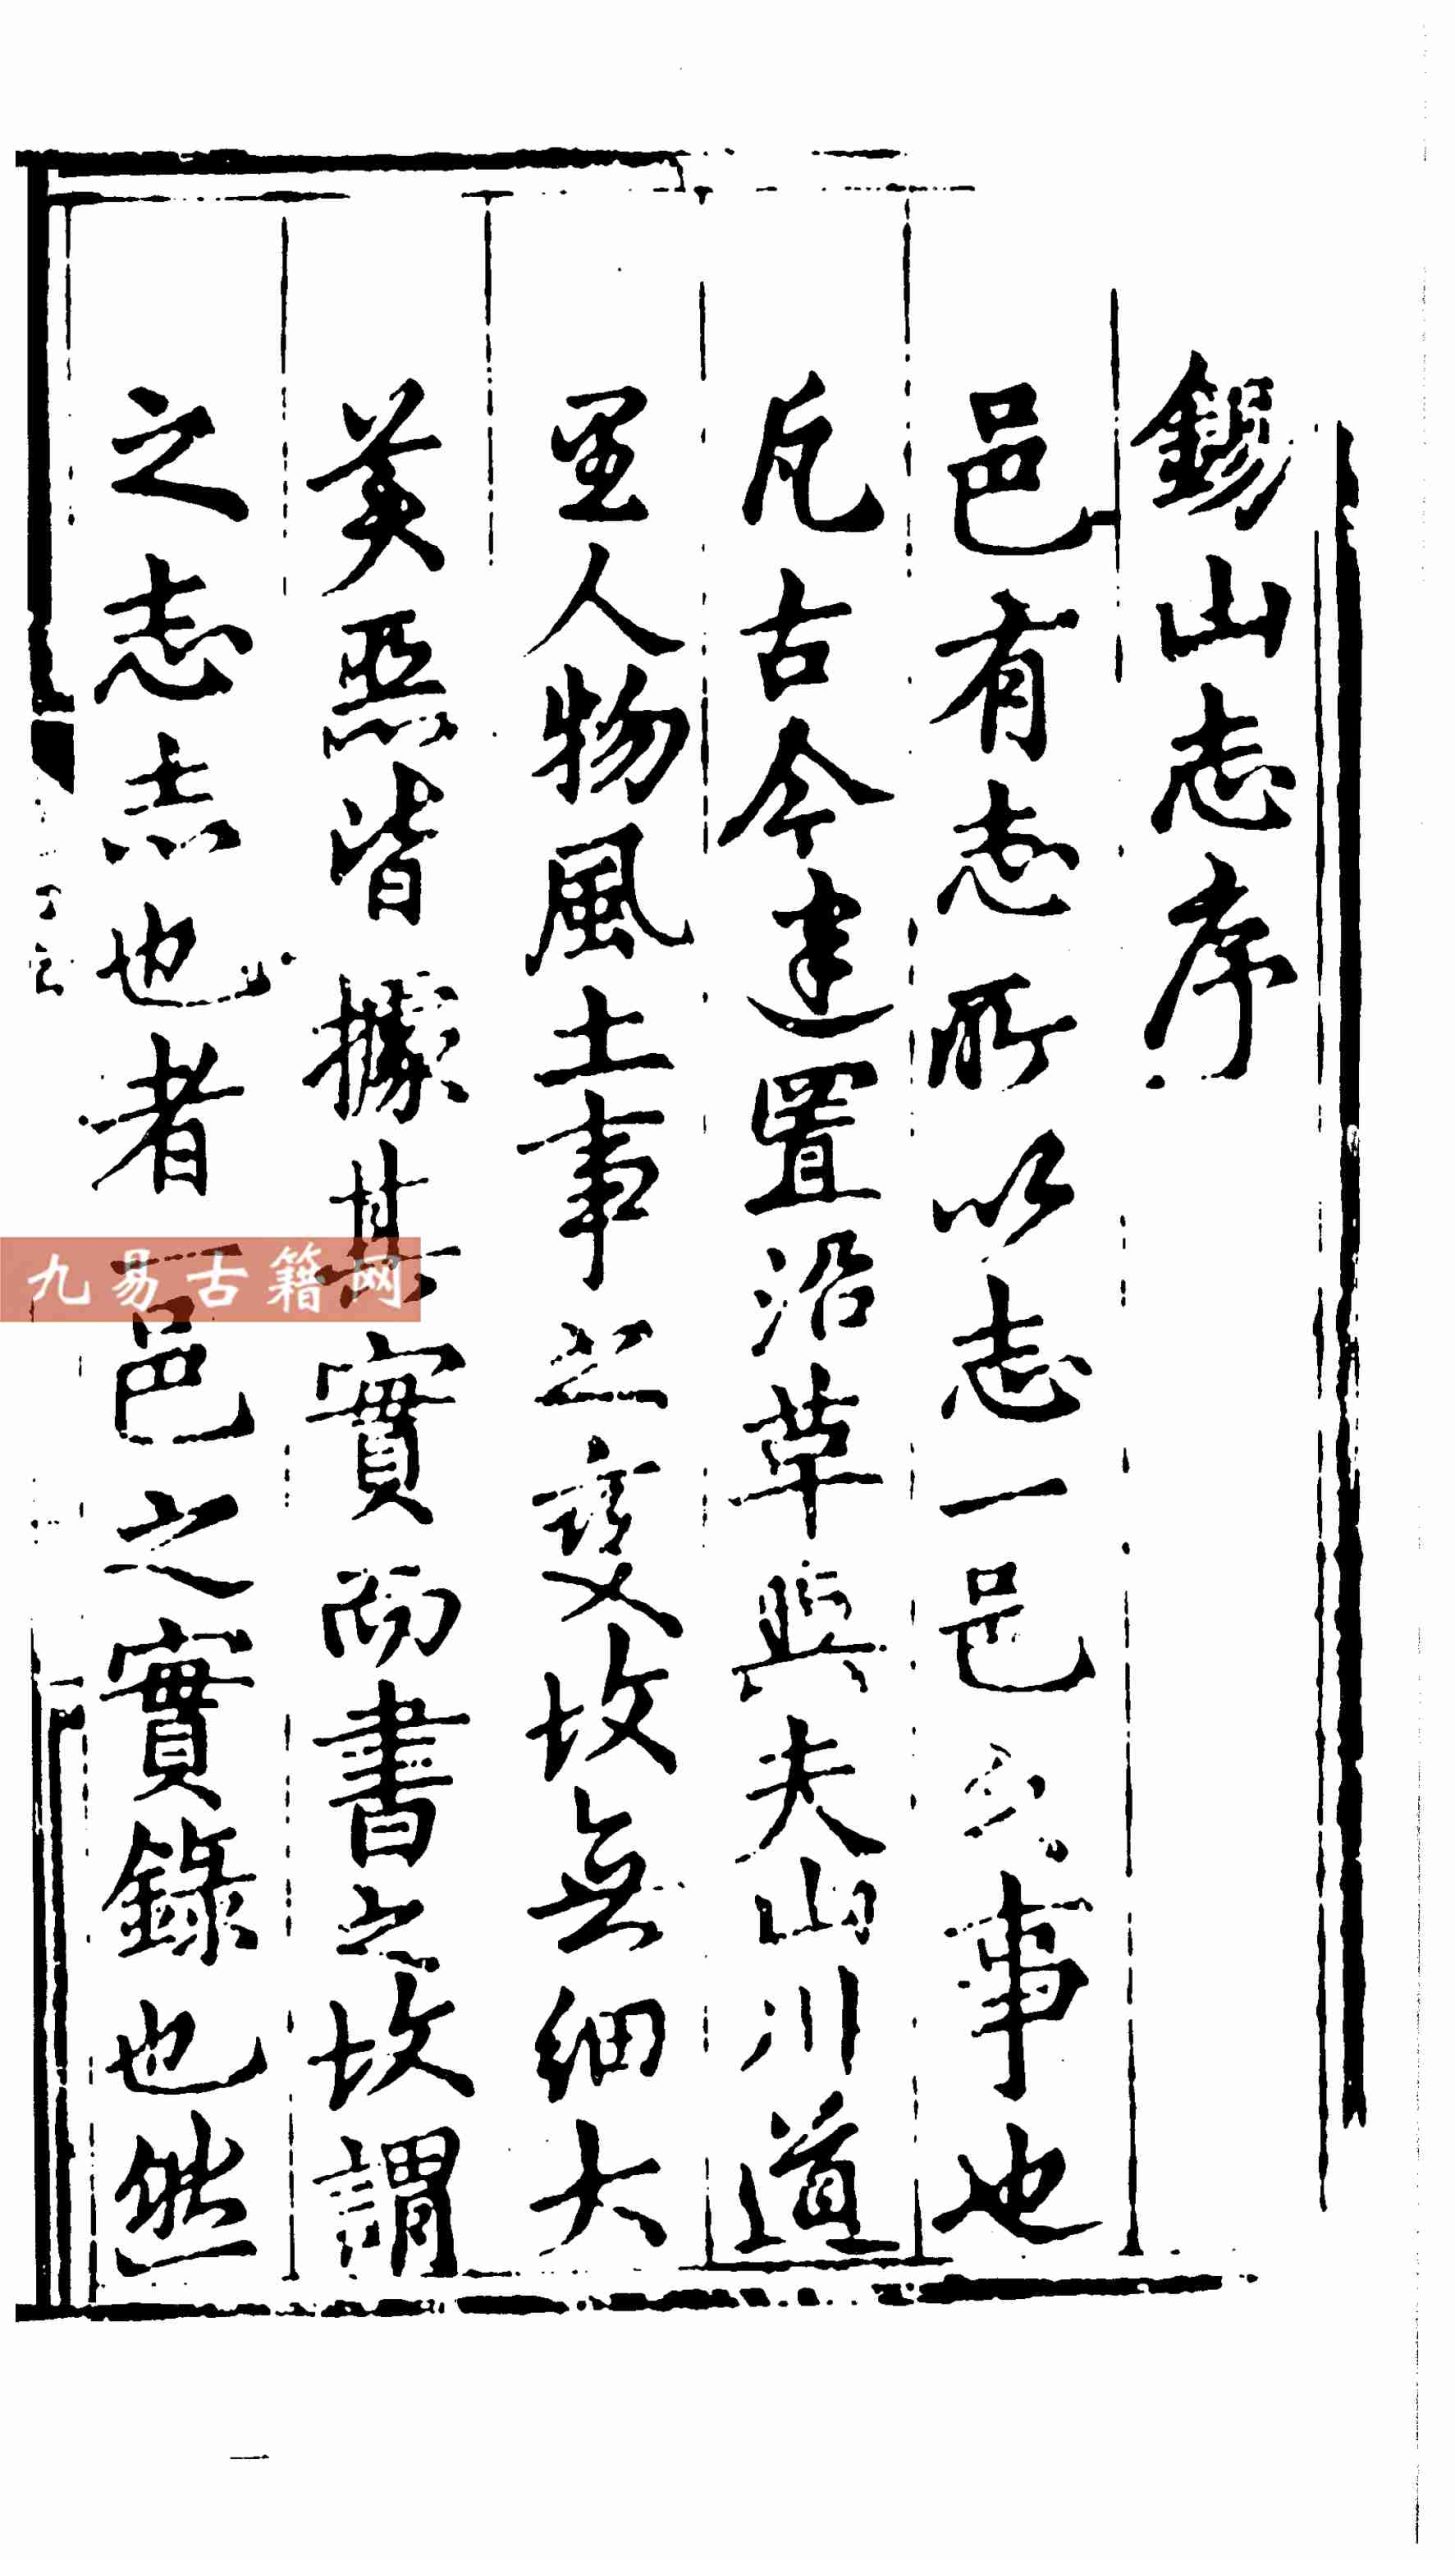 錫山志序
邑有志所以志一邑之事也
凡古今建置沿革與夫山川道
里人物風土事之變故無細大
美惡皆據其實而書之故謂
之志志也者一邑之實錄也然
九易古籍网
一